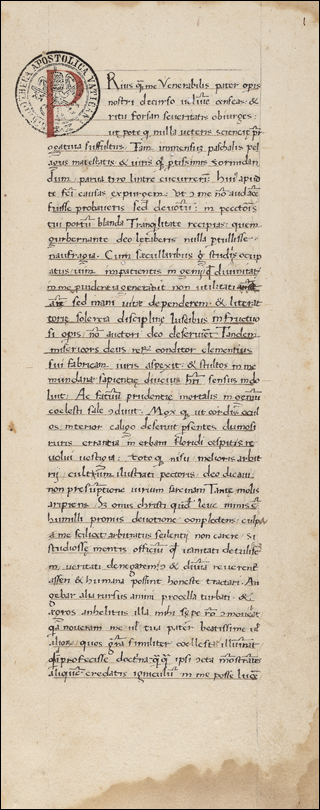 BIBLIOTHECA APOSTOLICA VATICANA
1
PRius qͣ me Venerabilis pater opis
nostri decurso uolūīe censeas &
ritu forsan seueritatis obiurges:
ut pote q nulla ueteris scientie
ogatiua suffultus. Tam immensuʒ paschalis pel
agus maiestatis & uiris qʒ ptissimis formidan
dum parua tiro lintre cucurrerī. Hui apud
te causas expurgem. Ut me nō audacē
fuisse probaueris sed deuotū: in pectoris
tui portū blanda Tranqlitate recipias quem
gurbernante deo letiberis nulla ptulisse
naufragia. Cum saecularibus g studiis occup
atus uim impatientis ingenii q diuinitas
in me puidentia generauit non utilitati
sed inani uitae dependerem: & litterat
torie solerera discipline lusibus infructuo
si opis nō auctori deo deseruirēt Tandem
misericors deus rerʒ conditor clementius
sui fabricam iuris aspexit & stultos in me
mundanae sapientie diucius sensus indo
luit. Ac fatuū prudentie mortalis ingeniū
coelesti sale diuit. Mox q ut cordis ocul
os interior caligo deseruit psentes dumosi
ruris errantia in erbam floridi cespitis re
uolui uestigia. toto q nisu melioris arbit
rii cultrum illustrati pectoris deo dicaui
non presūptione uirium sarcinam Tante molis
aripiens. Si onus christi quod leue nimis ē
humili pronus deuotione complectens. culpa
a me scilicet arbitratus seilentii non carere. Si
studiosse mentis officiū q uanitati detulissē
in ueritati denegarem & diuina reuerent
assen & humana possint honeste tractari. An
gebar aliū rursus animi procella turbati &
agros anhelitus illa mhi
qa noueram me ul tua pater beatissime ul
alior quos gra similiter coellesti illuminat
profecisse doctrina qq ipsi monstrātes
aliquem credatis igniculum in me posse lucē